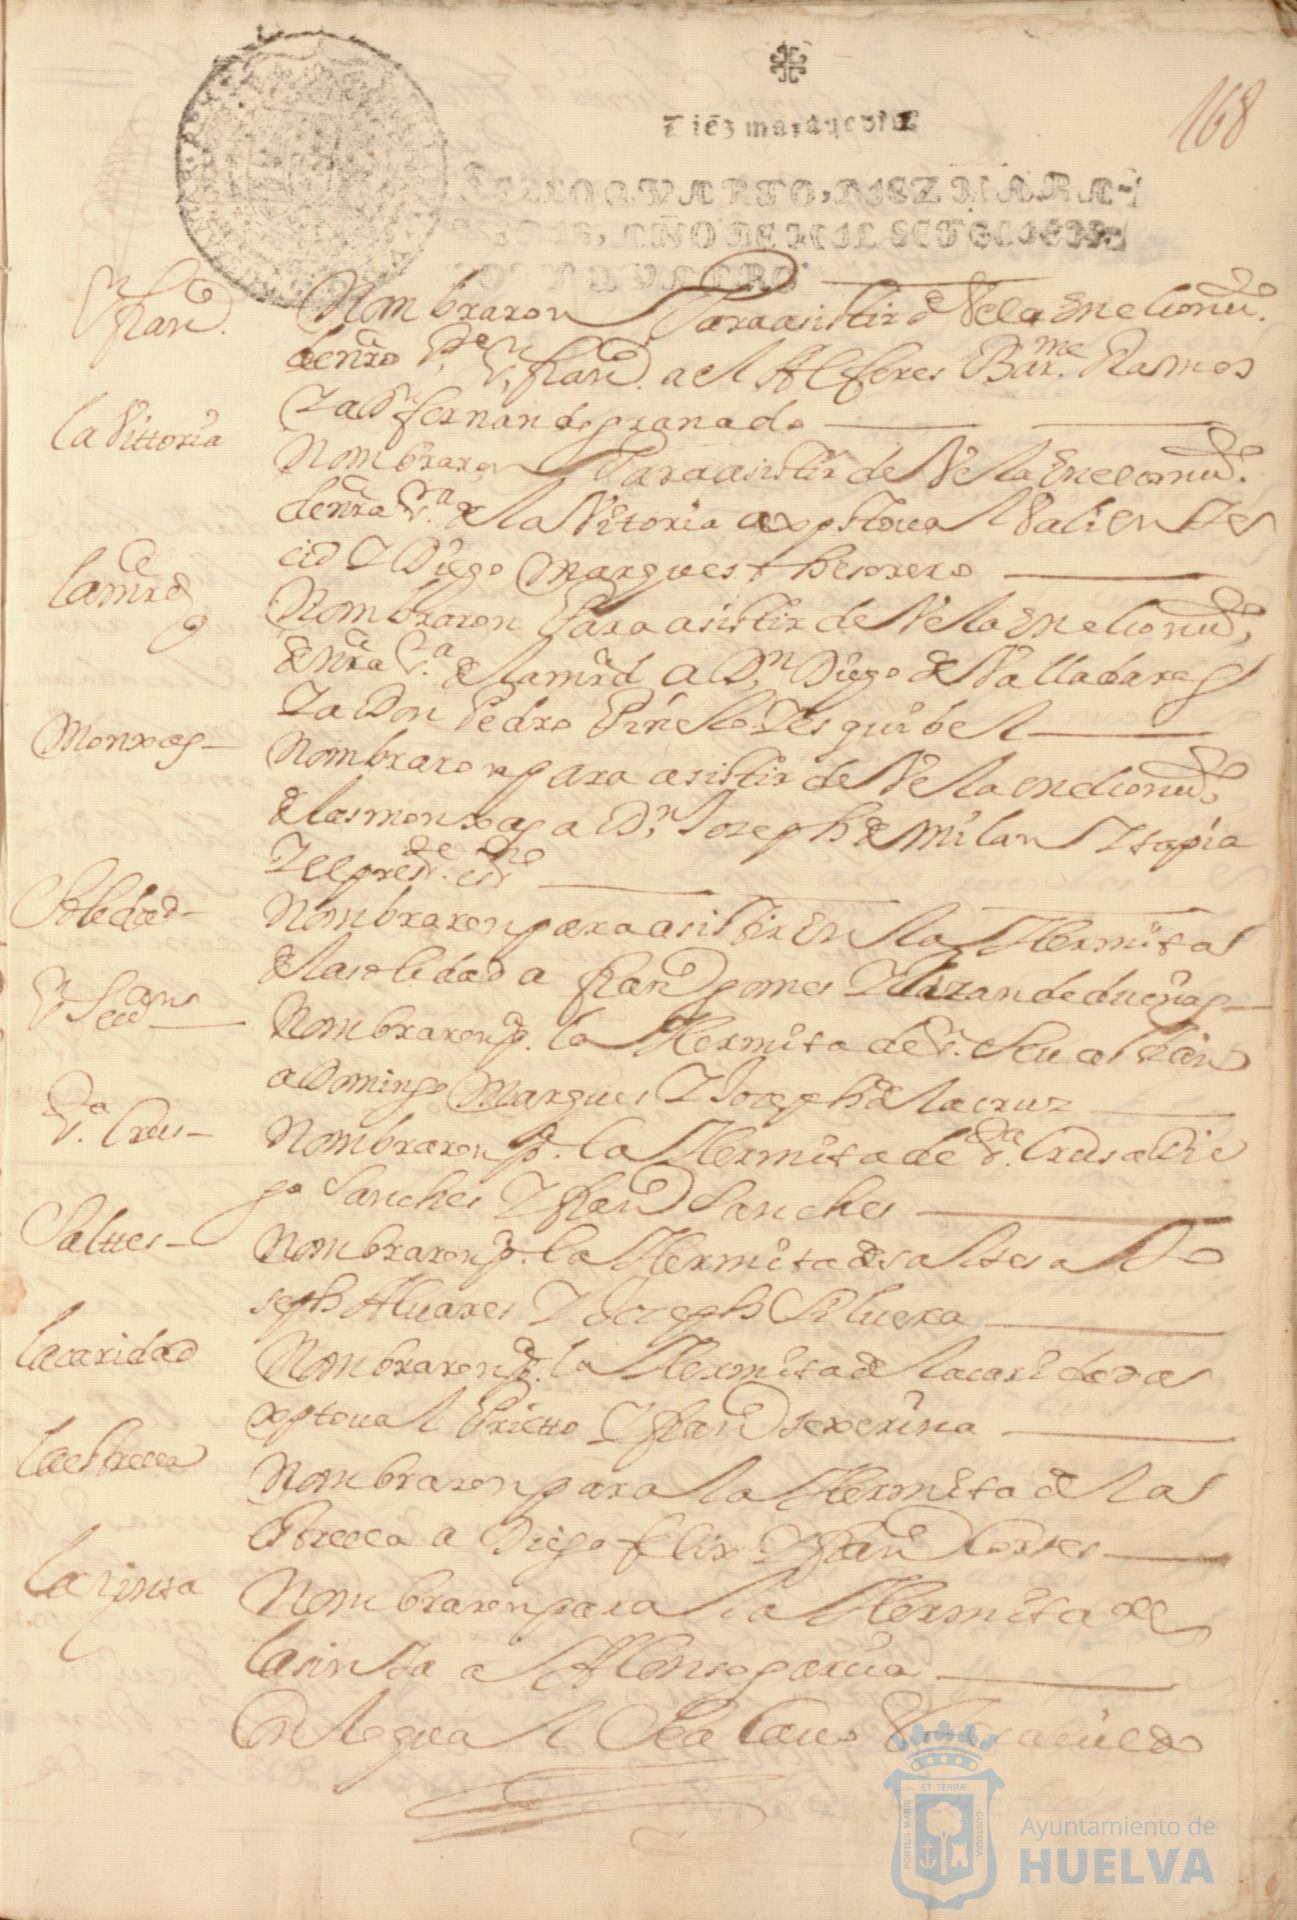 168
Diez maravedis
SELLO QVARTO, DIEZ MARA-
VEDIS, AÑO DE MIL SETECIENTOS
Y QVATRO
Sn franco.
Nombraron Para asistir de Vela En el Convto.
de nro Pe. Sn. franco. a el Alferes Barme. Ramos
Y a Dn fernando granado
la Vittoria
Nombraron Para asistir de Vela En el convto.
de nra Sra. de la Vitoria a xptoual Valiente
Y Diego Marques thesorero
la mrd
Nombraron Para asistir de Vela En el Convto.
de nra Sra. de la mrd a Dn. Diego de Valladares
Y a Don Pedro Piñelo Y esquibel
Monxas
Nombraron para asistir de Vela en el Convto.
de las monxas a Dn. Joseph de Milan Y tapia
Y el preste. esno
Soledad
Nombraron para asistir En la Hermita
de la soledad a franco gomes Y de dueñas
Sn. Seuans
Nombraron pa. la Hermita de Sn. Seuastian
a Domingo Marques Y Joseph de la cruz
Sta. Crus
Nombraron pa. la Hermita de Sta. Crus a Die
go Sanches Y franco Sanches
Salttes
Nombraron pa. la Hermita de saltes a Jo
seph Aluares Y Joseph Siluera
la caridad
Nombraron pa. la Hermita de la caridad a
xptoual Prietto Y franco texerina
la estrella
Nombraron para la Hermita de la
estrella a Diego felix Y franco Cortes
la zinta
Nombraron para la Hermita de
la sinta a Alonso garcia
Con lo qual Se a Cauo este acuerdo
PORTUS MARIS ET TERRÆ CUSTODIA
Ayuntamiento de
HUELVA